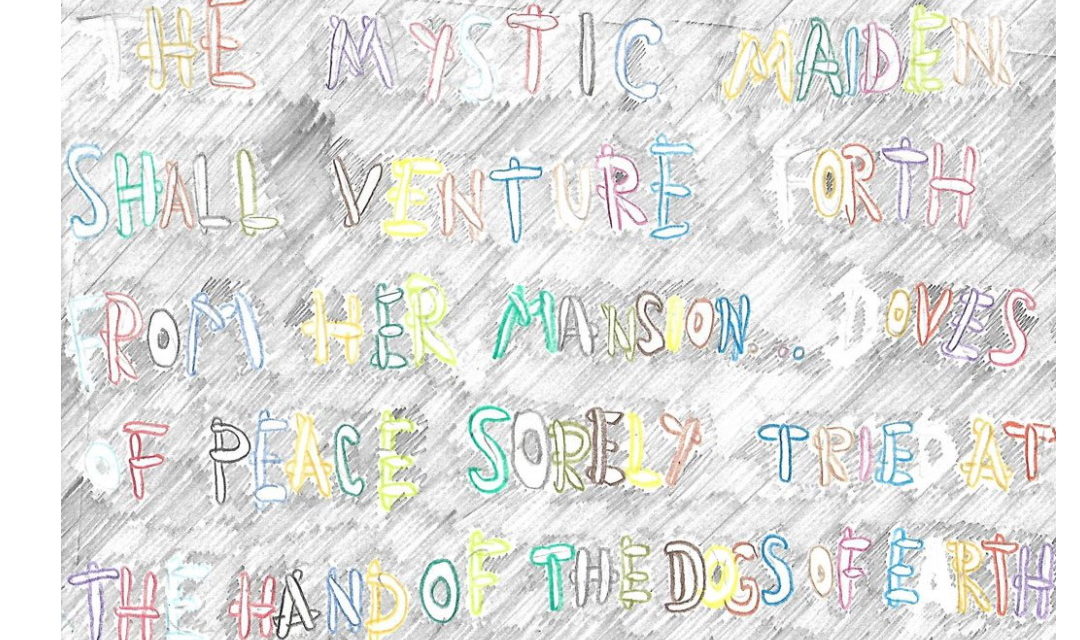 THE MYSTIC MAIDEN
SHALL VENTURE FORTH
FROM HER MANSION... DOVES
OF PEACE SORELY TRIED AT
THE HAND OF THE DOGS OF EARTH